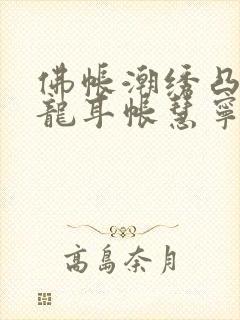 佛帳潮绣凸
龍耳帐慧寧
高島奈月